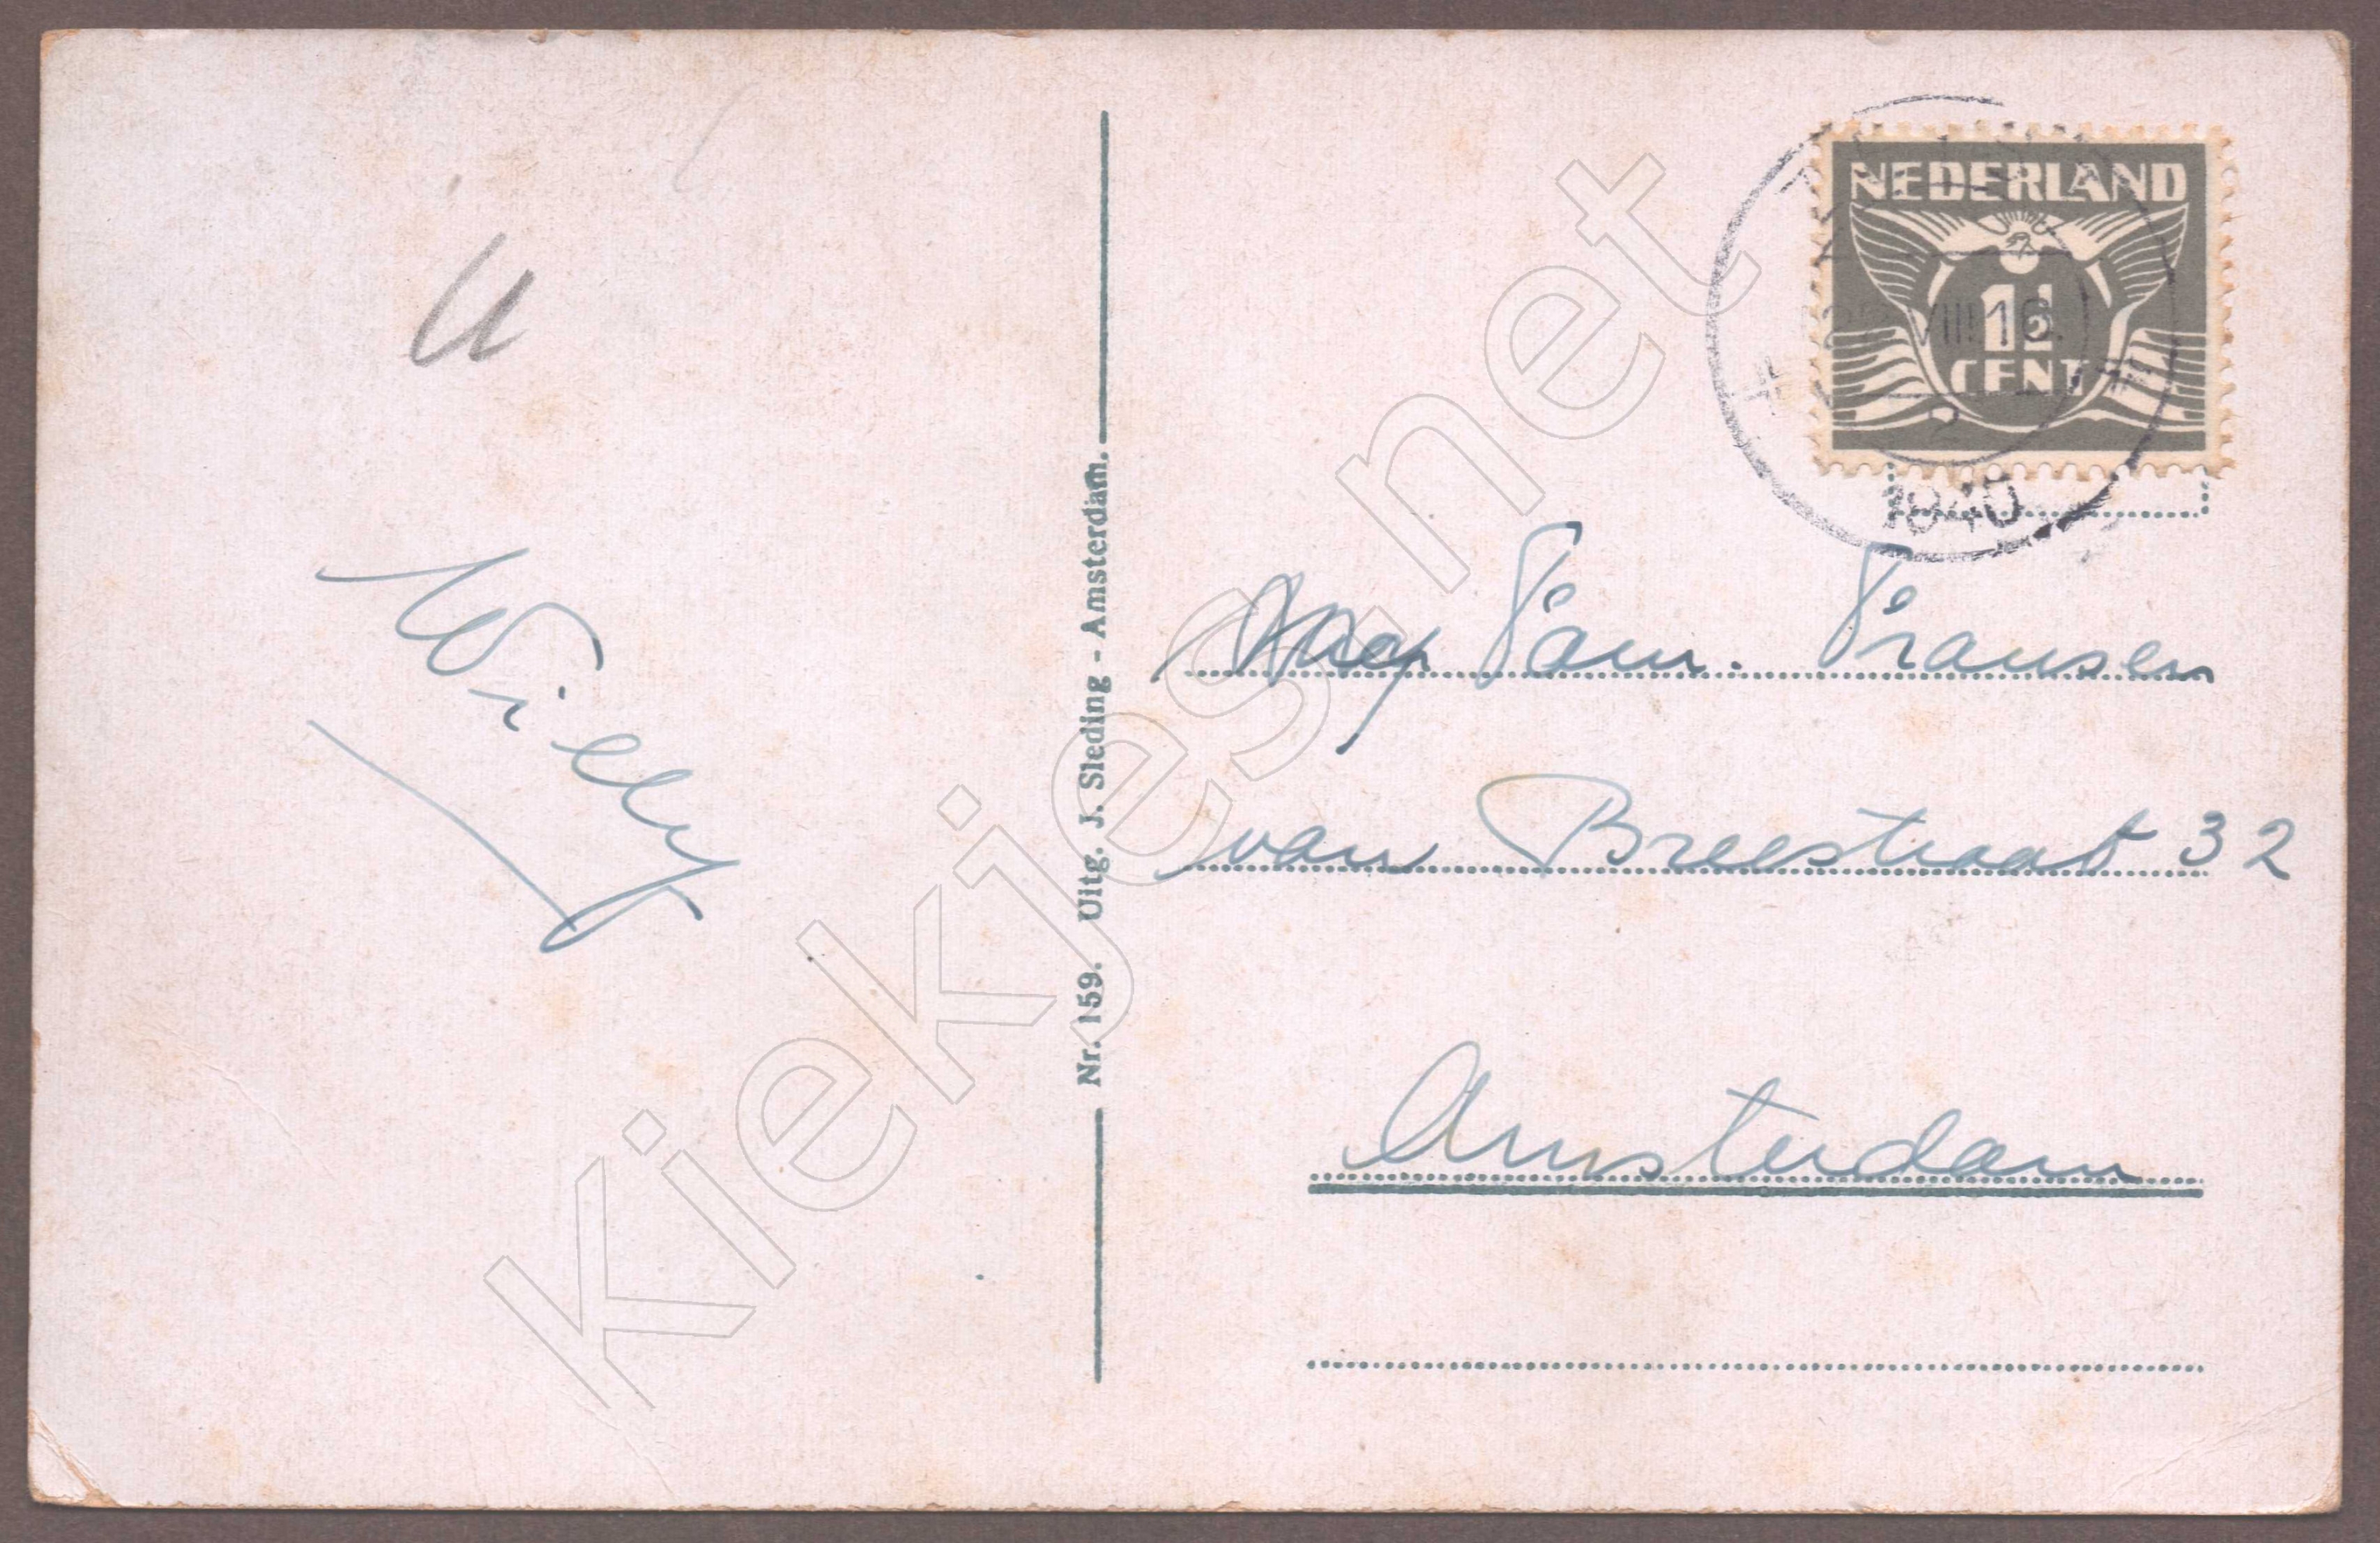 Willy
Nr. 159. Uitg. J. Sleding - Amsterdam.
NEDERLAND
1½
CENT
VIII 16
1940
Fam. Fransen
van Breestraat 32
Amsterdam
Kiekjes.net